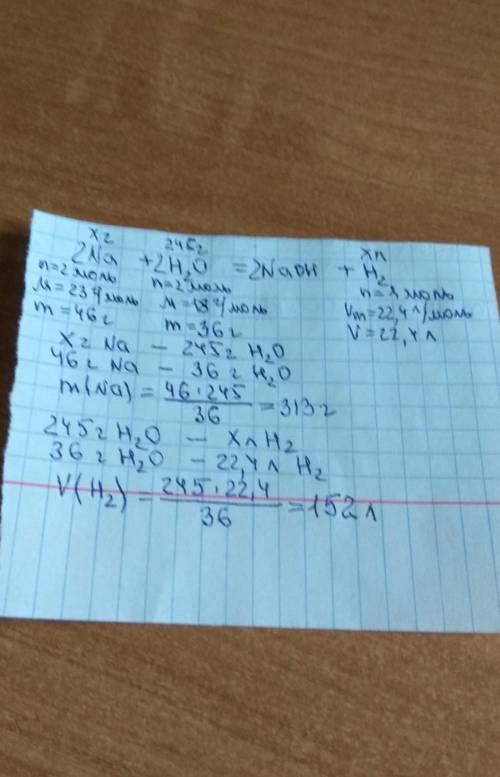 xг 245г xл
2Na + 2H₂O = 2NaOH + H₂
n=2 моль n=2 моль n=1 моль
M=23 г/моль M=18 г/моль Vm=22,4 л/моль
m=46г m=36г V=22,4 л
xг Na – 245г H₂O
46г Na – 36г H₂O
m(Na) = 46·245/36 = 313г
245г H₂O – xл H₂
36г H₂O – 22,4л H₂
V(H₂) = 245·22,4/36 = 152л